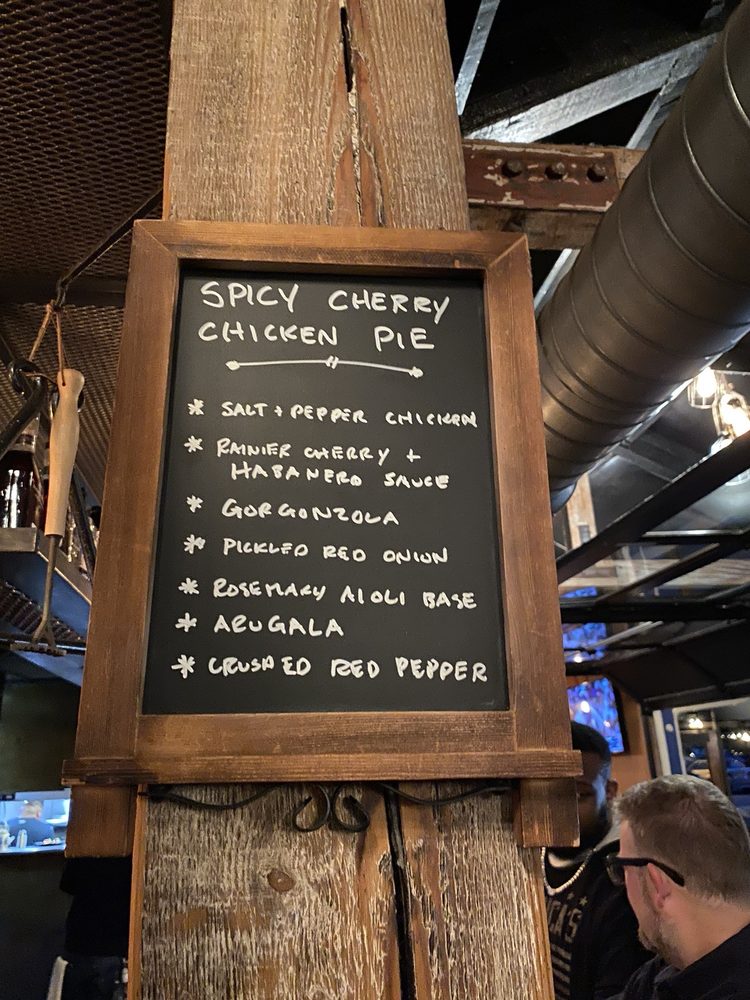 SPICY CHERRY
CHICKEN PIE
* SALT + PEPPER CHICKEN
* RAINIER CHERRY +
HABANERO SAUCE
* GORGONZOLA
* PICKLED RED ONION
* ROSEMARY AIOLI BASE
* ARUGALA
* CRUSHED RED PEPPER